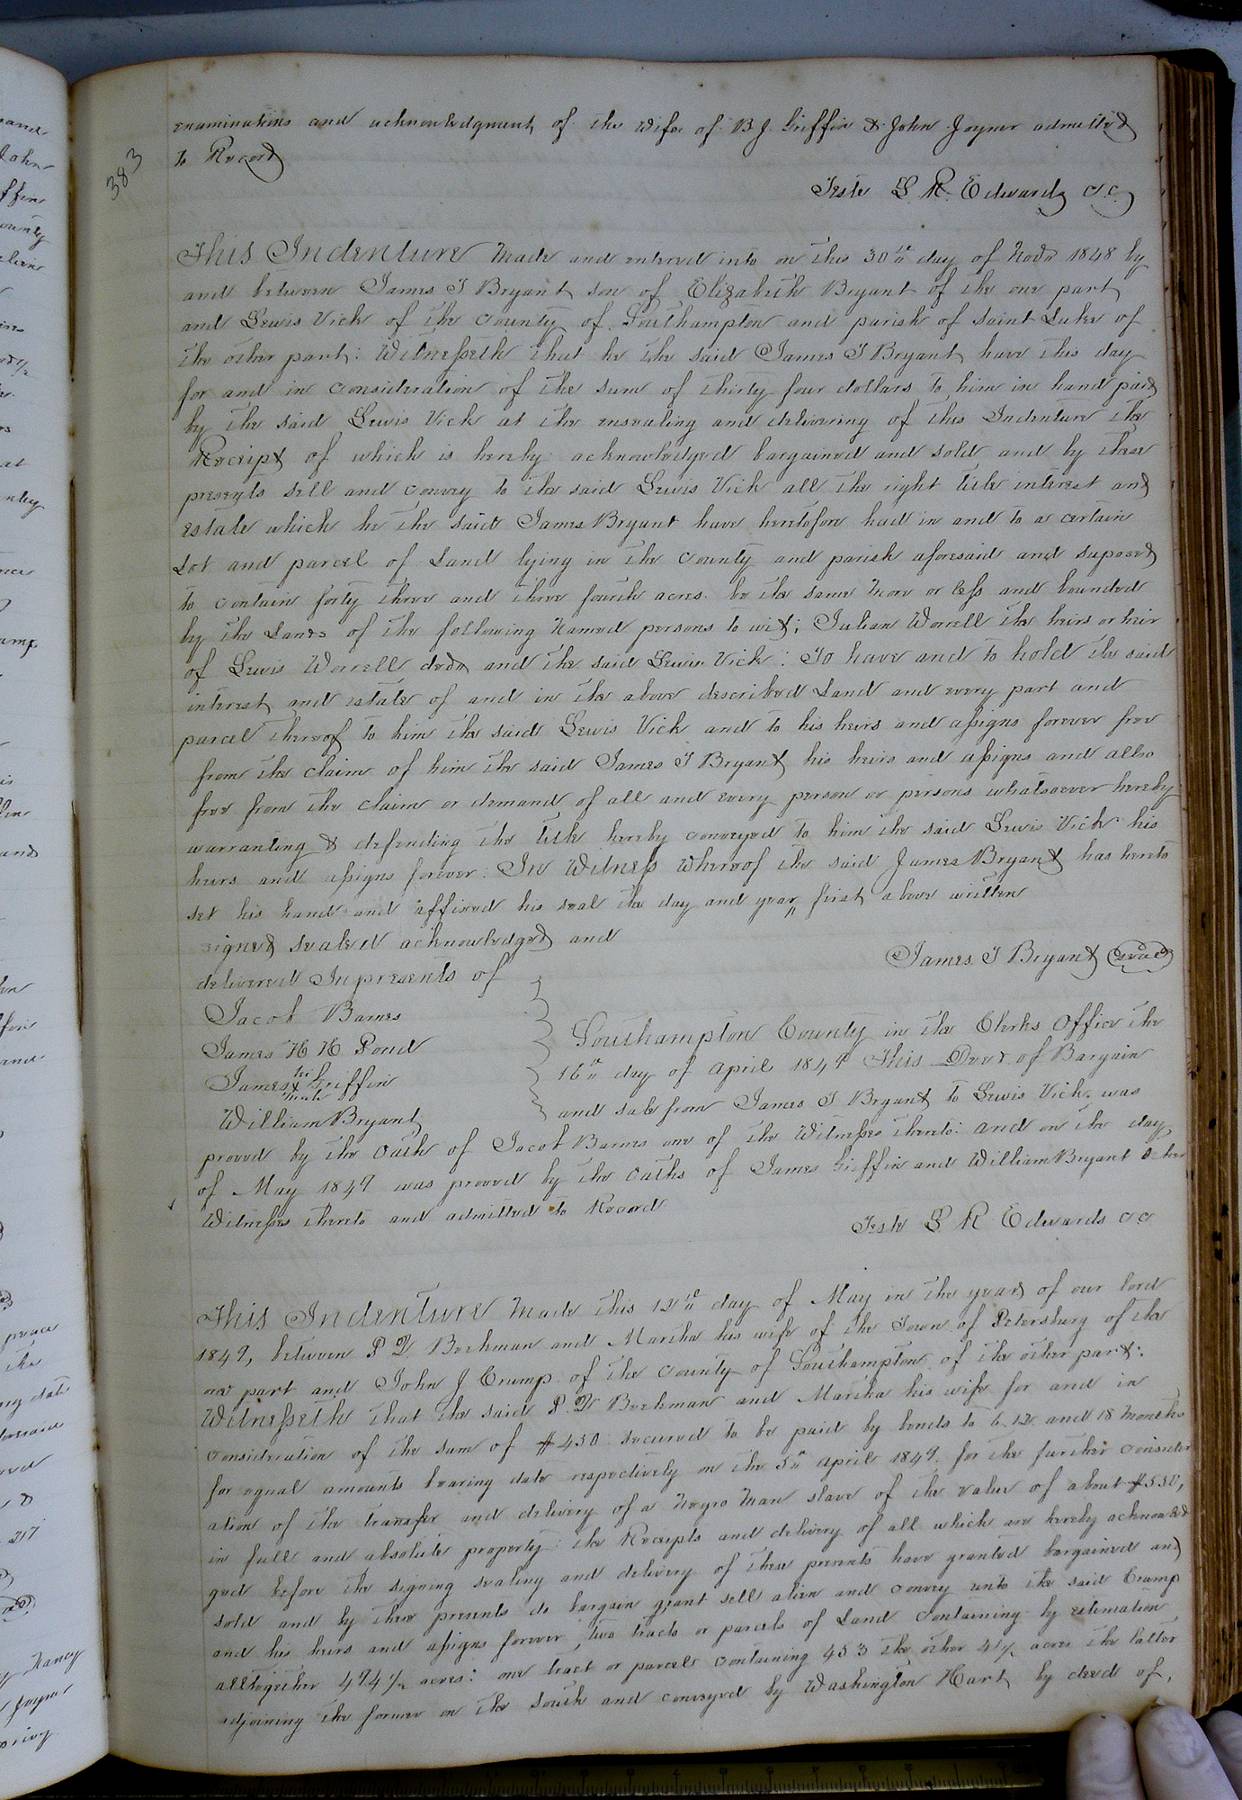 examinations and acknowledgment of the wife of B J. Griffin & John Joyner admitted
to Record
383
Teste L R. Edwards C.C.
This Indenture made and entered into on this 30th day of Novr 1848 by
and between James T Bryant son of Elizabeth Bryant of the one part
and Lewis Vick of the County of Southampton and parish of Saint Luke of
the other part: Witnesseth that he the said James T Bryant have this day
for and in consideration of the sum of thirty four dollars to him in hand paid
by the said Lewis Vick at the ensealing and delivering of this Indenture the
Receipt of which is hereby acknowledged bargained and sold and by these
presents sell and convey to the said Lewis Vick all the right title interest and
estate which he the said James Bryant have heretofore had in and to a certain
Lot and parcel of Land lying in the County and parish aforesaid and suposed
to contain forty three and three fourth acres be the same more or less and bounded
by the Lands of the following named persons to wit; Julian Worrell the heirs or heir
of Lewis Worrell decd and the said Lewis Vick: To have and to hold the said
interest and estate of and in the above described Land and every part and
parcel thereof to him the said Lewis Vick and to his heirs and assigns forever free
from the claim of him the said James T Bryant his heirs and assigns and also
free from the claim or demand of all and every person or persons whatsoever hereby
warranting & defending the title hereby conveyed to him the said Lewis Vick his
heirs and assigns forever: In Witness whereof the said James Bryant has hereto
set his hand and affixed his seal the day and year first above written
signed sealed acknowledged and
delivered In presents of
James T Bryant (Seal)
Jacob Barnes
James H H Pond
James his x mark Griffin
William Bryant
Southampton County in the Clerks Office the
16th day of April 1849 This Deed of Bargain
and sale from James T Bryant to Lewis Vick was
proved by the Oath of Jacob Barnes one of the Witnesses thereto: and on the day
of May 1849 was proved by the Oaths of James Griffin and William Bryant other
Witnesses thereto and admitted to Record
Teste L R Edwards CC
This Indenture made this 12th day of May in the year of our lord
1849, between P D Beckman and Martha his wife of the Town of Petersburg of the
one part and John J Crump of the County of Southampton of the other part:
Witnesseth that the said P. D Beckman and Martha his wife for and in
consideration of the sum of $450 secured to be paid by bonds to 6. 12 and 18 months
for equal amounts bearing date respectively on the 5th april 1849. for the further consider
ation of the transfer and delivery of a Negro Man slave of the value of about $550,
in full and absolute property: the Receipts and delivery of all which are hereby acknowled
ged before the signing sealing and delivery of these presents have granted bargained and
sold and by these presents do bargain grant sell alien and convey unto the said Crump
and his heirs and assigns forever, two tracts or parcels of Land containing by estimation
alltogether 494½ acres: one tract or parcel containing 453 the other 41½ acres the latter
adjoining the former on the South and conveyed by Washington Hart by deed of,